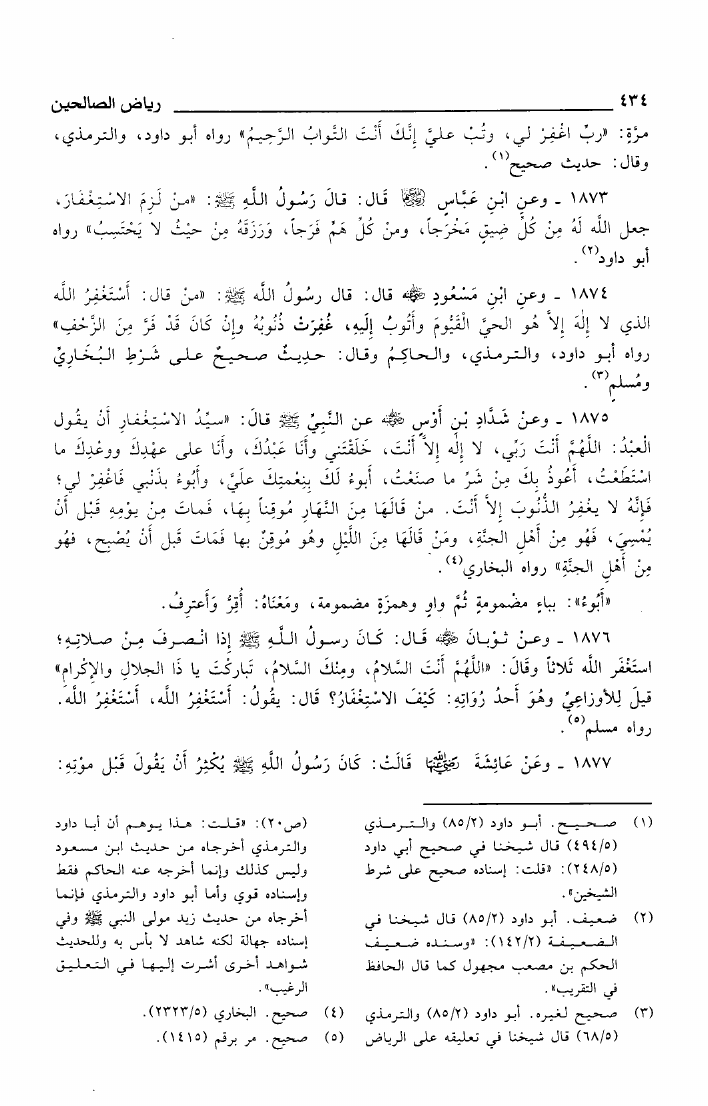 ٤٣٤ رياض الصالحين
مرّةٍ: «ربِّ اغْفِرْ لي، وتُبْ عليَّ إِنَّكَ أَنْتَ التَّوابُ الرَّحِيمُ» رواه أبو داود، والترمذي،
وقال: حديث صحيح(١).
١٨٧٣ ـ وعنِ ابْنِ عَبَّاسٍ رضي الله عنهما قَال: قالَ رَسُولُ اللَّهِ ﷺ: «منْ لَزِمَ الاسْتِغْفَارَ،
جعل اللَّه لَهُ مِنْ كُلِّ ضِيقٍ مَخْرَجاً، ومنْ كُلِّ هَمٍّ فَرَجاً، وَرَزَقَهُ مِنْ حيْثُ لا يَحْتَسِبُ» رواه
أبو داود(٢).
١٨٧٤ ـ وعنِ ابْنِ مَسْعُودٍ رضي الله عنه قال: قال رسُولُ اللَّه ﷺ: «منْ قال: أَسْتَغْفِرُ اللَّه
الذي لا إِلهَ إِلاَّ هُو الحيَّ القَيُّومَ وأَتُوبُ إِلَيهِ، غُفِرَتْ ذُنُوبُهُ وإِنْ كَانَ قَدْ فَرَّ مِنَ الزَّحْفِ»
رواه أبو داود، والترمذي، والحاكِمُ وقال: حديثٌ صحيحٌ على شَرْطِ البُخَارِيِّ
ومُسلمٍ(٣).
١٨٧٥ ـ وعنْ شَدَّادِ بْنِ أَوْسٍ رضي الله عنه عنِ النَّبيِّ ﷺ قالَ: «سيِّدُ الاسْتِغْفارِ أَنْ يقُول
الْعبْدُ: اللَّهُمَّ أَنْتَ رَبِّي، لا إِلٰه إِلاَّ أَنْتَ، خَلَقْتَني وأَنَا عَبْدُكَ، وأَنَا على عهْدِكَ ووعْدِكَ ما
اسْتَطَعْتُ، أَعُوذُ بِكَ مِنْ شَرِّ ما صنَعْتُ، أَبوءُ لَكَ بِنِعْمتِكَ علَيَّ، وأَبُوءُ بذَنْبي فَاغْفِرْ لي؛
فَإِنَّهُ لا يغْفِرُ الذُّنُوبَ إِلاَّ أَنْتَ. منْ قَالَهَا مِنَ النَّهَارِ مُوقِناً بِهَا، فَمات مِنْ يوْمِهِ قَبْل أَنْ
يُمْسِيَ، فَهُو مِنْ أَهْلِ الجنَّةِ، ومَنْ قَالَهَا مِنَ اللَّيْلِ وهُو مُوقِنٌ بها فَمَاتَ قَبل أَنْ يُصْبِح، فهُو
مِنْ أَهْلِ الجنَّةِ» رواه البخاري(٤).
«أَبُوءُ»: بباءٍ مضْمومةٍ ثُمَّ واوٍ وهمزَةٍ مضمومة، ومَعْنَاهُ: أُقِرُّ وَأَعترِفُ.
١٨٧٦ ـ وعنْ ثوْبانَ رضي الله عنه قَال: كَانَ رسولُ اللَّهِ ﷺ إِذا انْصرفَ مِنْ صلاتِهِ؛
استَغْفَر اللَّه ثَلاثاً وقَالَ: «اللَّهُمَّ أَنْتَ السَّلامُ، ومِنْكَ السَّلامُ، تَباركْتَ يا ذَا الجلالِ والإِكْرامِ»
قيلَ لِلأَوزاعِيِّ وهُوَ أَحدُ رُوَاتِهِ: كَيْفَ الاسْتِغْفَارُ؟ قال: يقُولُ: أَسْتَغْفِرُ اللَّه، أَسْتَغْفِرُ اللَّهَ.
رواه مسلم(٥).
١٨٧٧ ـ وعَنْ عَائِشَةَ رضي الله عنها قَالَتْ: كَانَ رَسُولُ اللَّهِ ﷺ يُكْثِرُ أَنْ يَقُولَ قَبْل موْتِهِ:
(١) صحيح. أبو داود (٨٥/٢) والترمذي
(٤٩٤/٥) قال شيخنا في صحيح أبي داود
(٢٤٨/٥): «قلت: إسناده صحيح على شرط
الشيخين».
(٢) ضعيف. أبو داود (٨٥/٢) قال شيخنا في
الضعيفة (١٤٢/٢): «وسنده ضعيف
الحكم بن مصعب مجهول كما قال الحافظ
في التقريب».
(٣) صحيح لغيره. أبو داود (٨٥/٢) والترمذي
(٦٨/٥) قال شيخنا في تعليقه على الرياض
(ص٢٠): «قلت: هذا يوهم أن أبا داود
والترمذي أخرجاه من حديث ابن مسعود
وليس كذلك وإنما أخرجه عنه الحاكم فقط
وإسناده قوي وأما أبو داود والترمذي فإنما
أخرجاه من حديث زيد مولى النبي ﷺ وفي
إسناده جهالة لكنه شاهد لا بأس به وللحديث
شواهد أخرى أشرت إليها في التعليق
الرغيب».
(٤) صحيح. البخاري (٢٣٢٣/٥).
(٥) صحيح. مر برقم (١٤١٥).